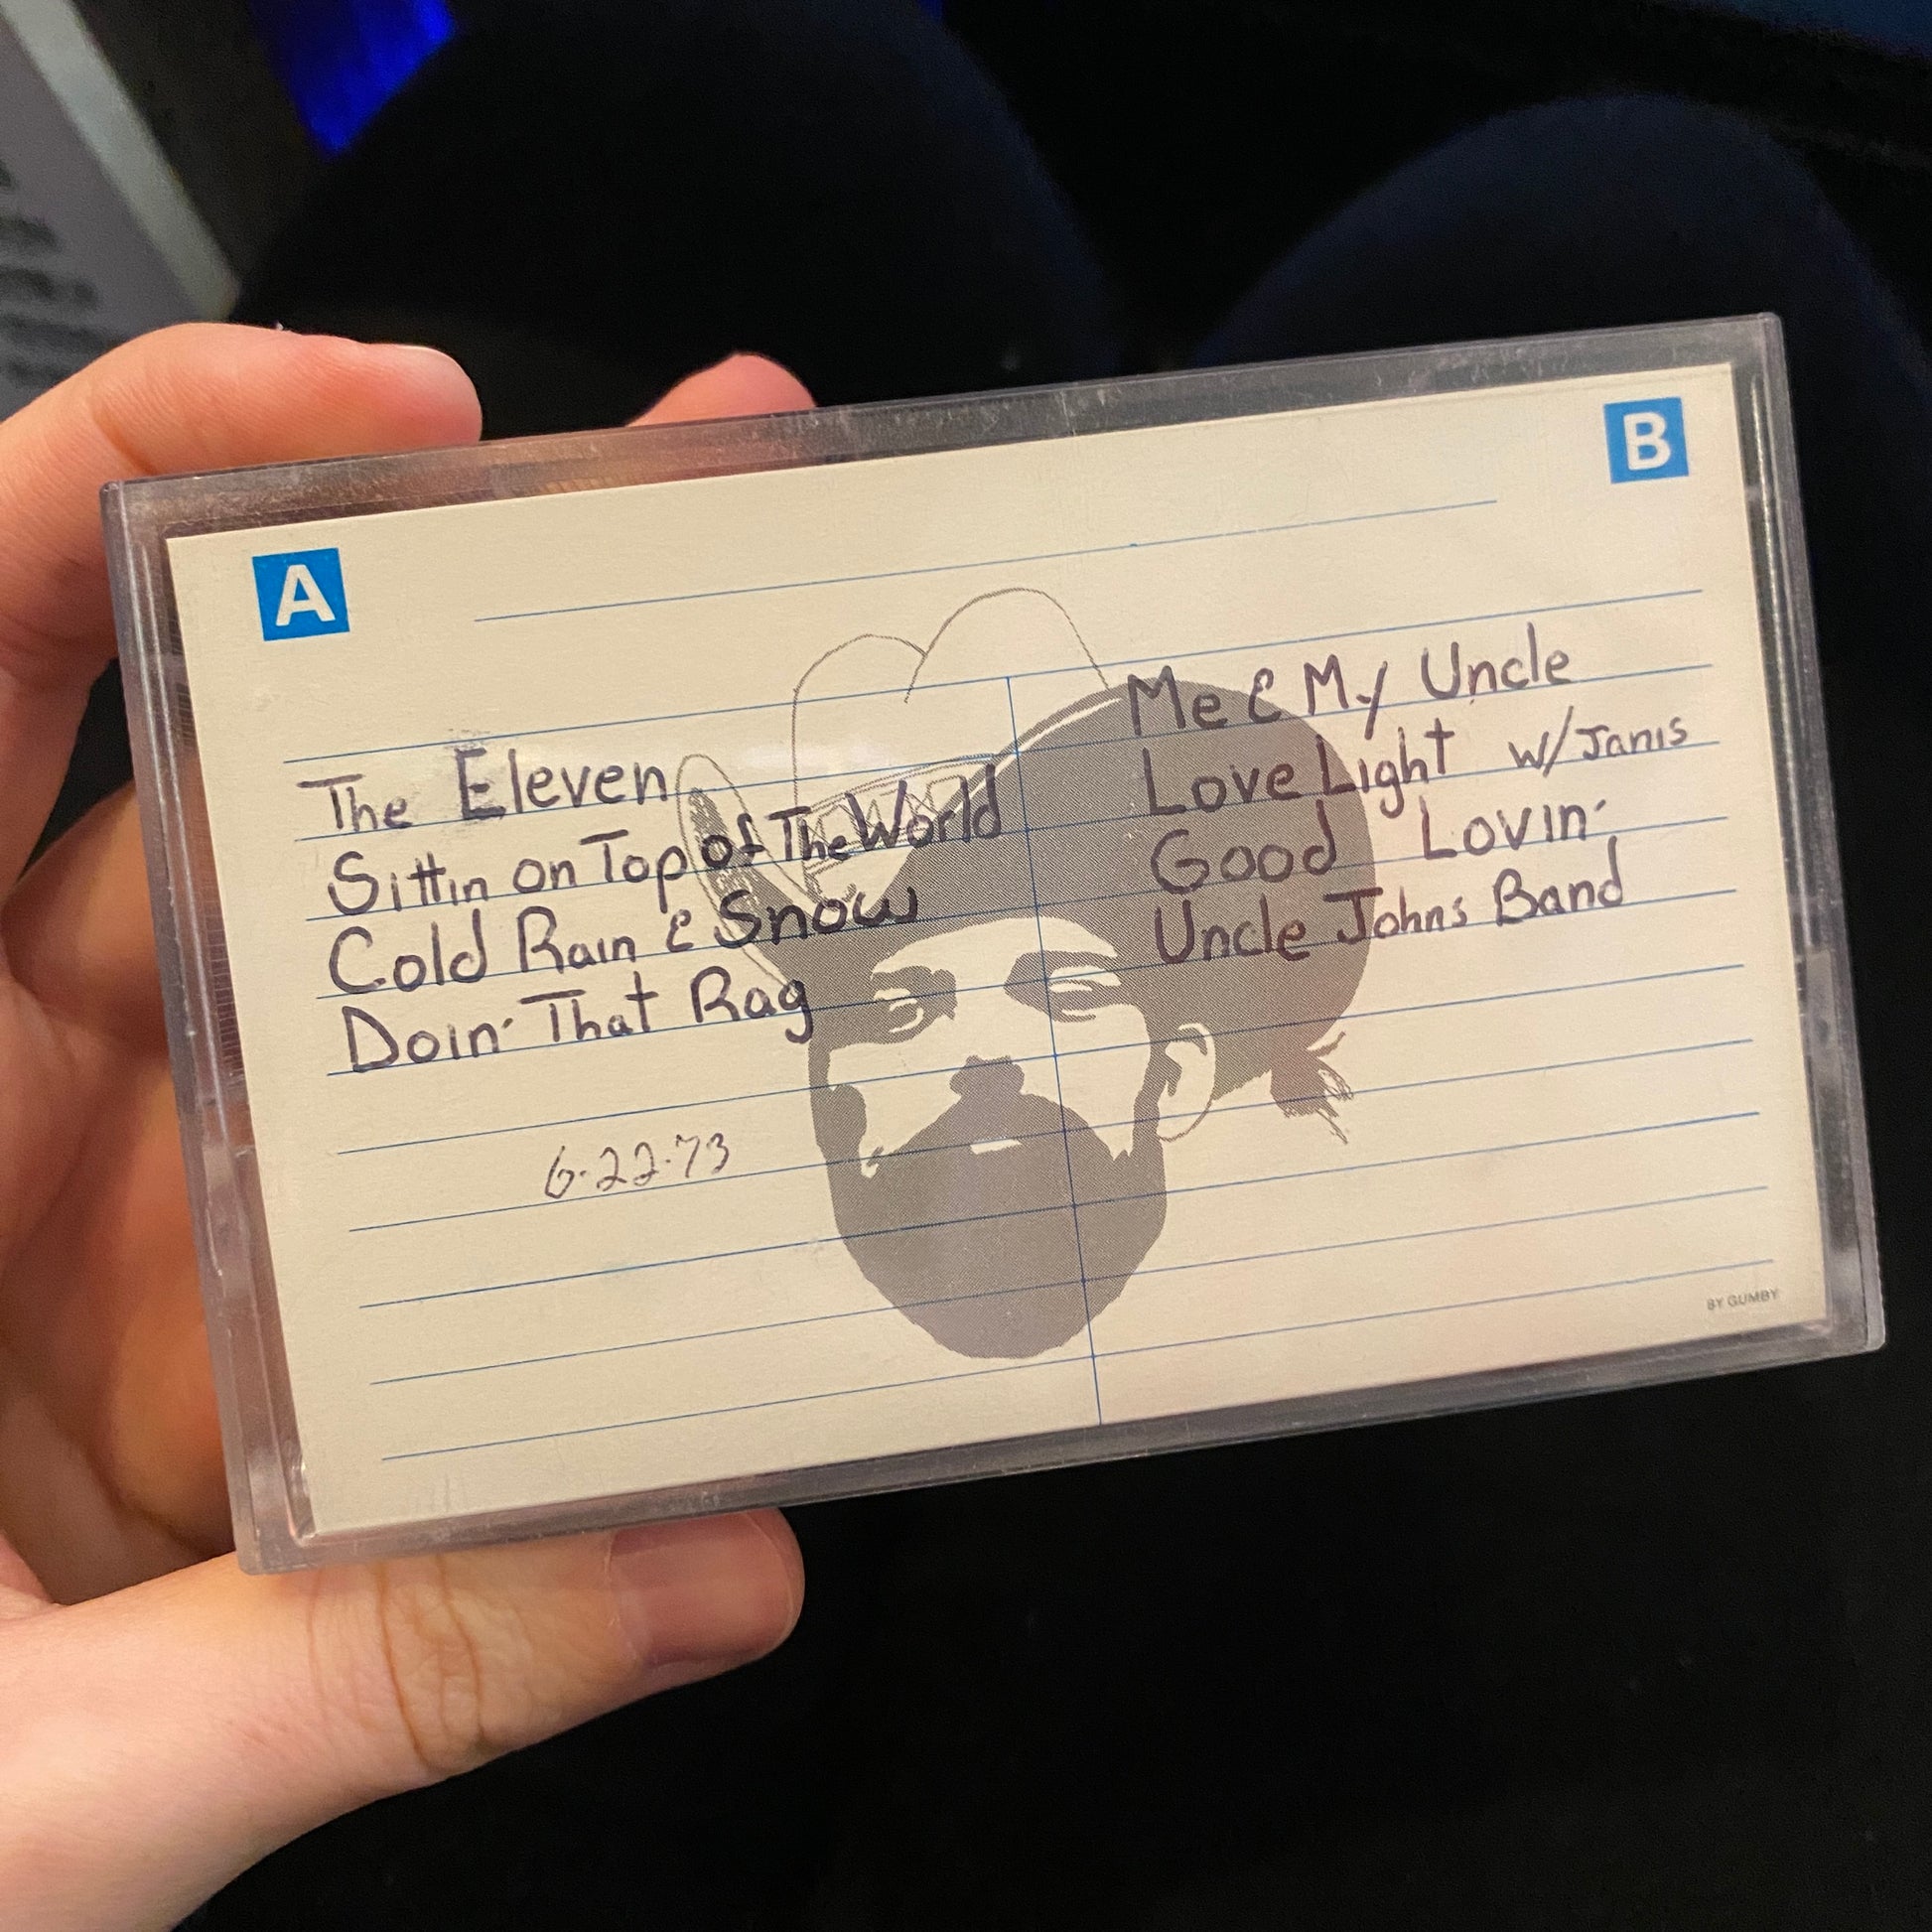 A
The Eleven
Sittin on Top of The World
Cold Rain & Snow
Doin' That Rag
6·22·73
B
Me & My Uncle
Love Light w/Janis
Good Lovin'
Uncle Johns Band
BY GUMBY